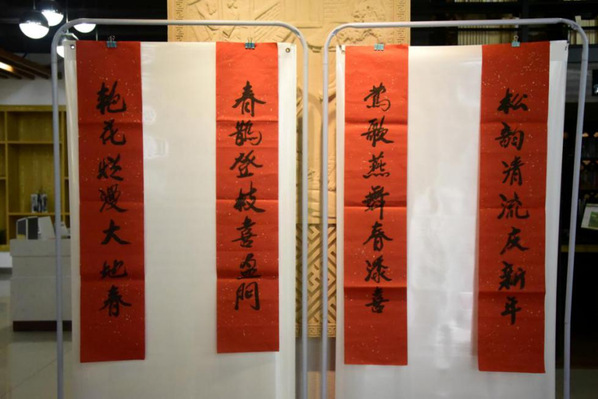 松韵清流庆新年
莺歌燕舞春添喜
春鹊登枝喜盈门
艳花烂漫大地春